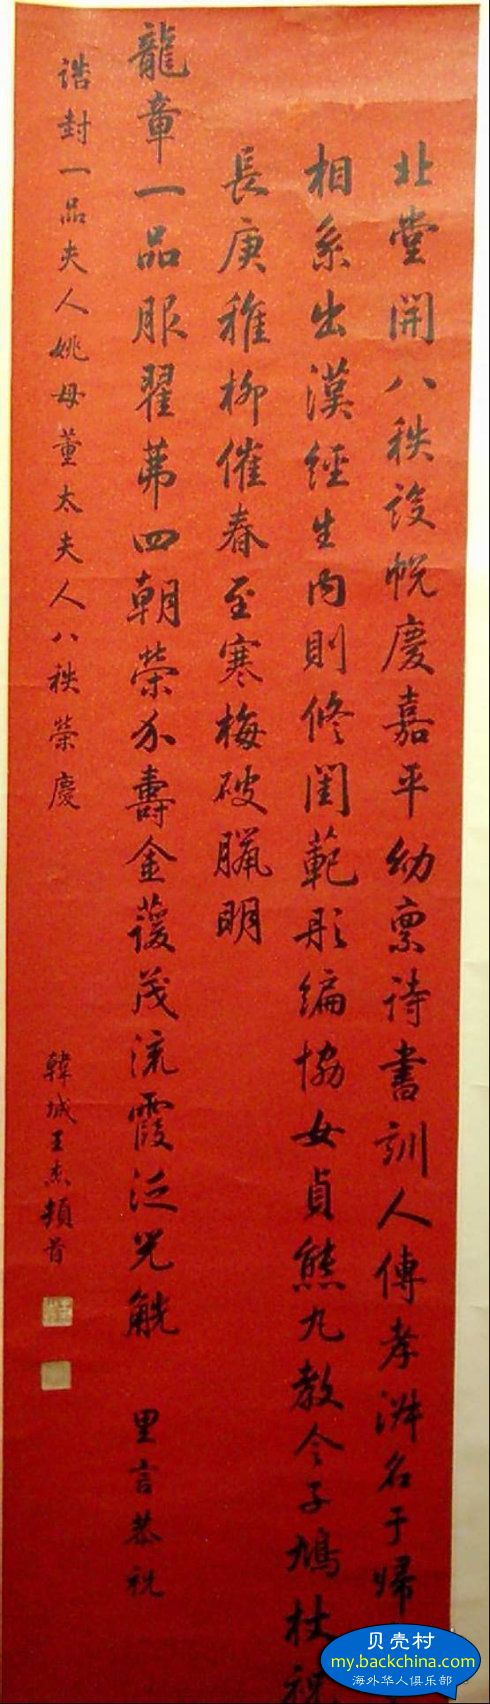 北堂開八秩設帨慶嘉平幼稟詩書訓人傳孝淑名于歸
相系出漢經生內則修閨範彤編協女貞熊丸教令子鳩杖
長庚稚柳催春至寒梅破臘明
龍章一品服翟茀四朝榮介壽金蘐茂流霞泛兕觥 里言恭祝
誥封一品夫人姚母董太夫人八秩榮慶
韓城王杰頓首
贝壳村
my.backchina.com
海外华人俱乐部